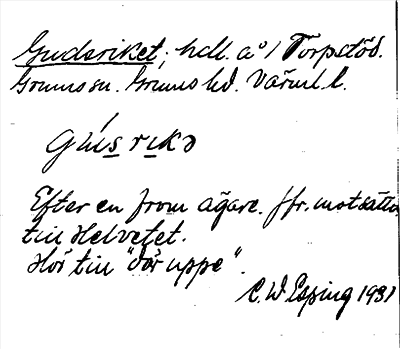 Guderiket, hdl. a° / Torpstöd.
Grums sn. Grums hd. Värml. l.
gúis rikə
Efter en from ägare. Jfr. motsättn
till Helvetet.
Hör till "där uppe".
C. W. Esping 1931